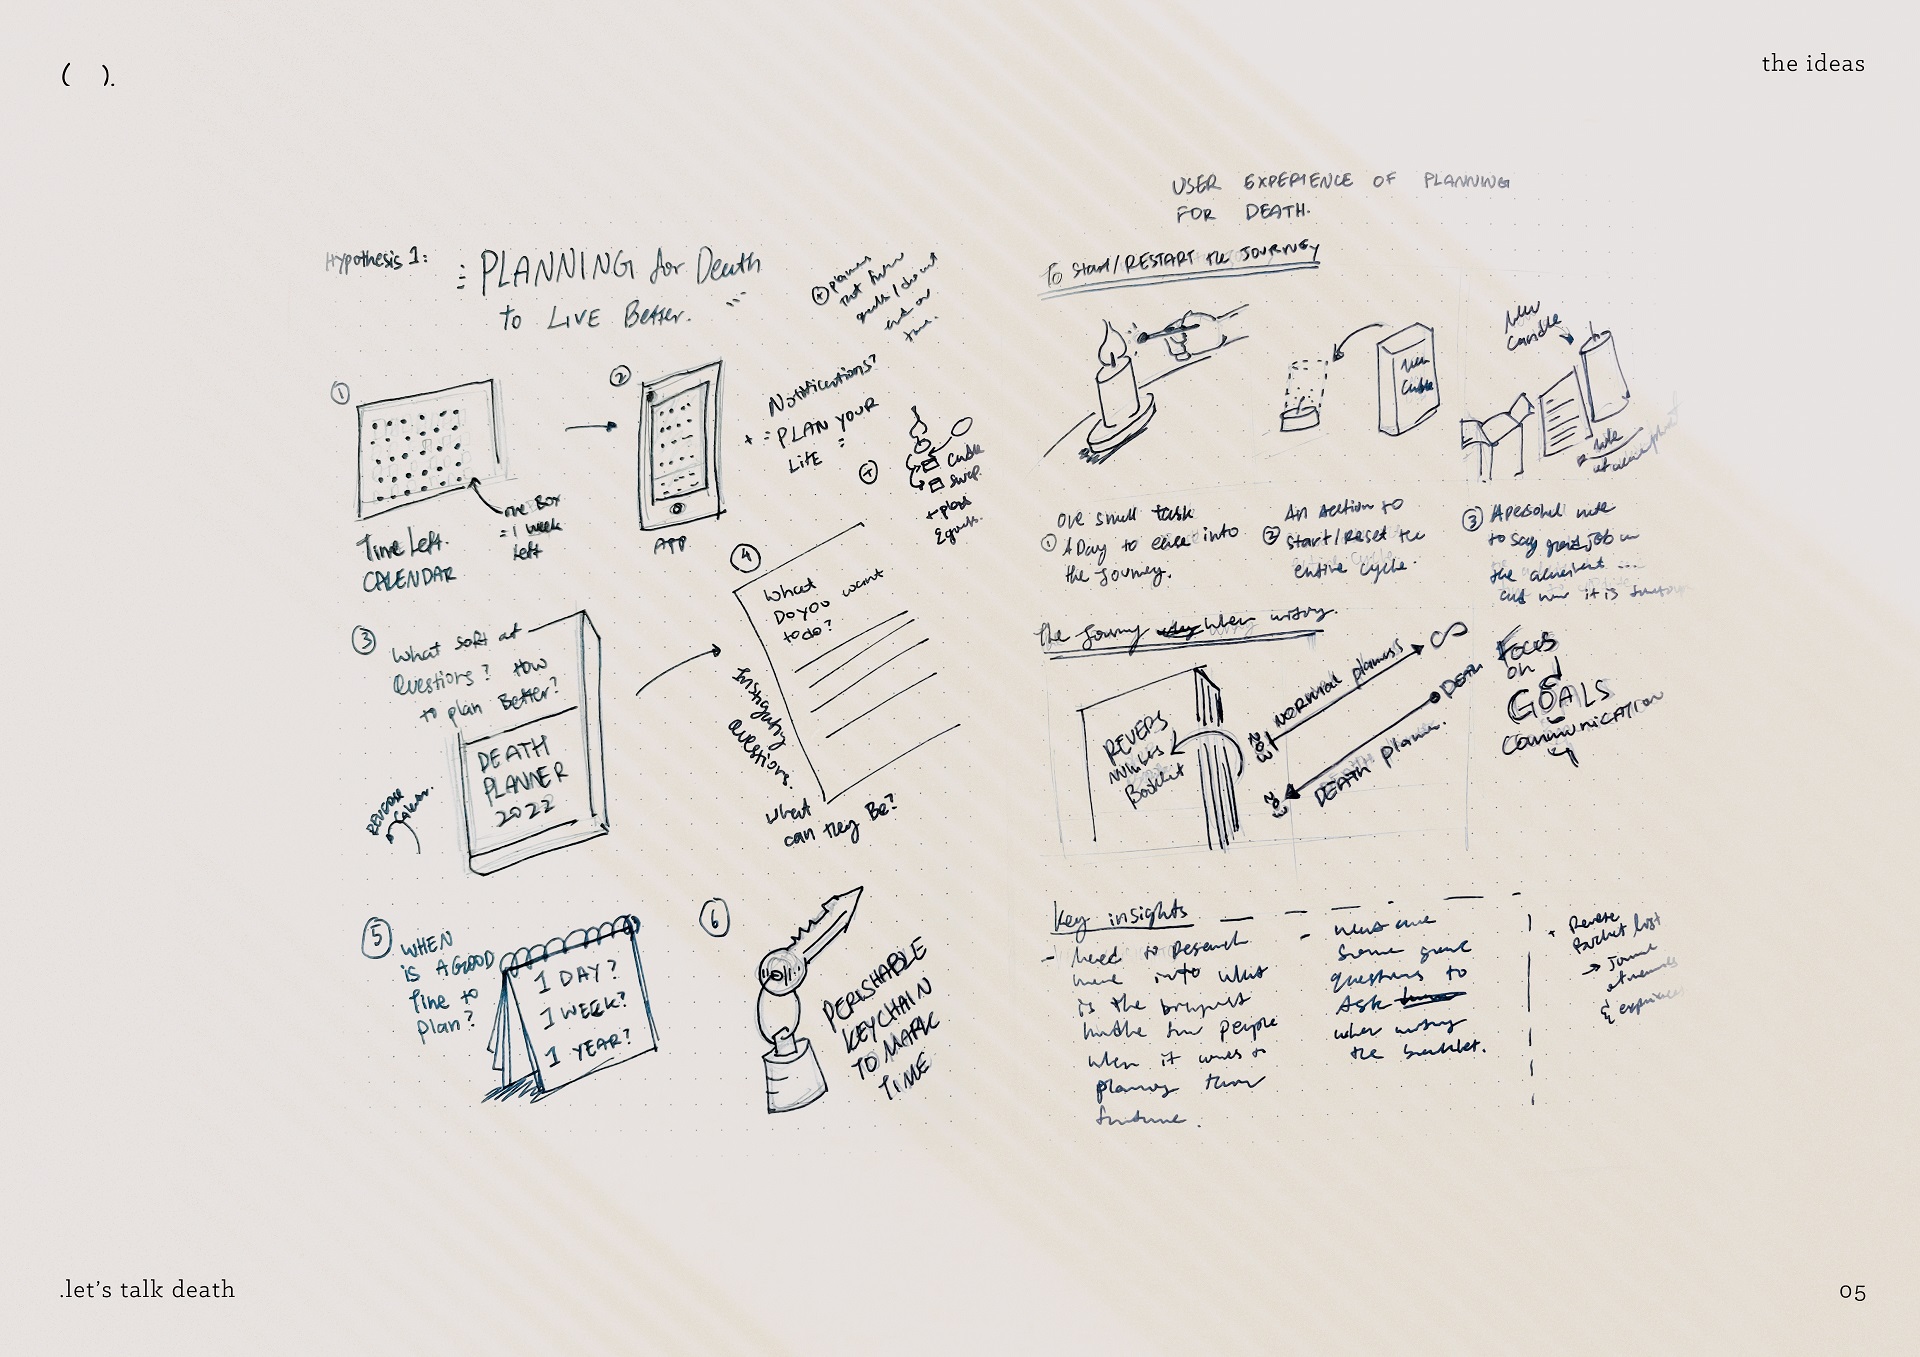 ( ).
the ideas
Hypothesis 1:
PLANNING for Death
to LIVE Better.
planners
that
goals /
time.
1
one Box
= 1 week
left
Time Left.
CALENDAR
2
APP
Notifications?
+ PLAN YOUR
LIFE
+
candle
swap.
+ plans
& goals.
3
What sort of
Questions? How
to plan Better?
DEATH
PLANNER
2022
REVERSE
4
What
Do you want
to do?
Instigating
Questions.
What
can they Be?
5
WHEN
is A GOOD
Time to
plan?
1 DAY?
1 WEEK?
1 YEAR?
6
PERISHABLE
KEYCHAIN
TO MARK
TIME
USER EXPERIENCE OF PLANNING
FOR DEATH.
To Start/RESTART the JOURNEY
New
Candle
New
Candle
note
one small task
1 A Day to ease into
the Journey.
2 An Action to
start/Reset the
entire cycle.
3 A personal note
to say good job on
the ...
it is
The Journey when writing.
REVERS
Booklet
NORMAL planners
∞
DEATH
DEATH planner.
Focus
on
GOALS
Communication
Key insights
- Need to research
more into what
is the biggest
hurdle for people
when it comes to
planning their
- 
some
questions to
Ask
when writing
the booklet.
Reverse
Bucket list
→
&
.let's talk death
05